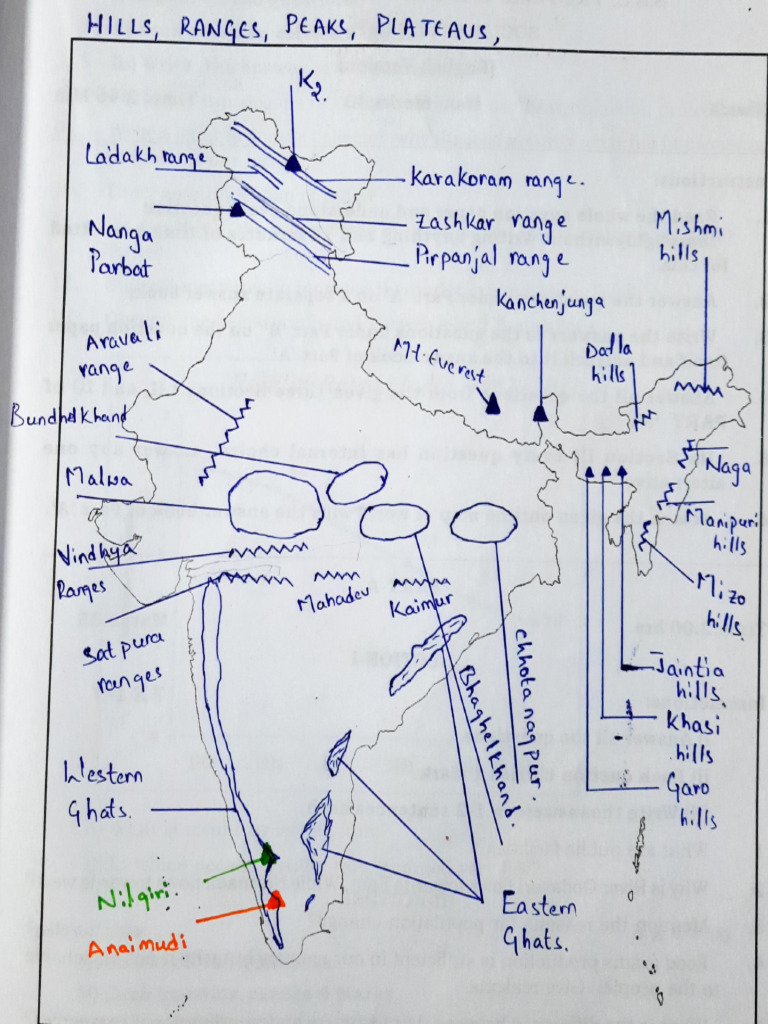 HILLS, RANGES, PEAKS, PLATEAUS,
K2
Ladakh range
Karakoram range.
Nanga
Parbat
Zashkar range
Pirpanjal range
Mishmi
hills
Kanchenjunga
Mt. Everest
Dafla
hills
Aravali
range
Bundhelkhand
Malwa
Naga
Manipuri
hills
Vindhya
Ranges
Mahadev
Kaimur
Mizo
hills
Satpura
ranges
Chhota nagpur.
Bhaghelkhand.
Jaintia
hills
Khasi
hills
Garo
hills
Western
Ghats.
Nilgiri
Anaimudi
Eastern
Ghats.